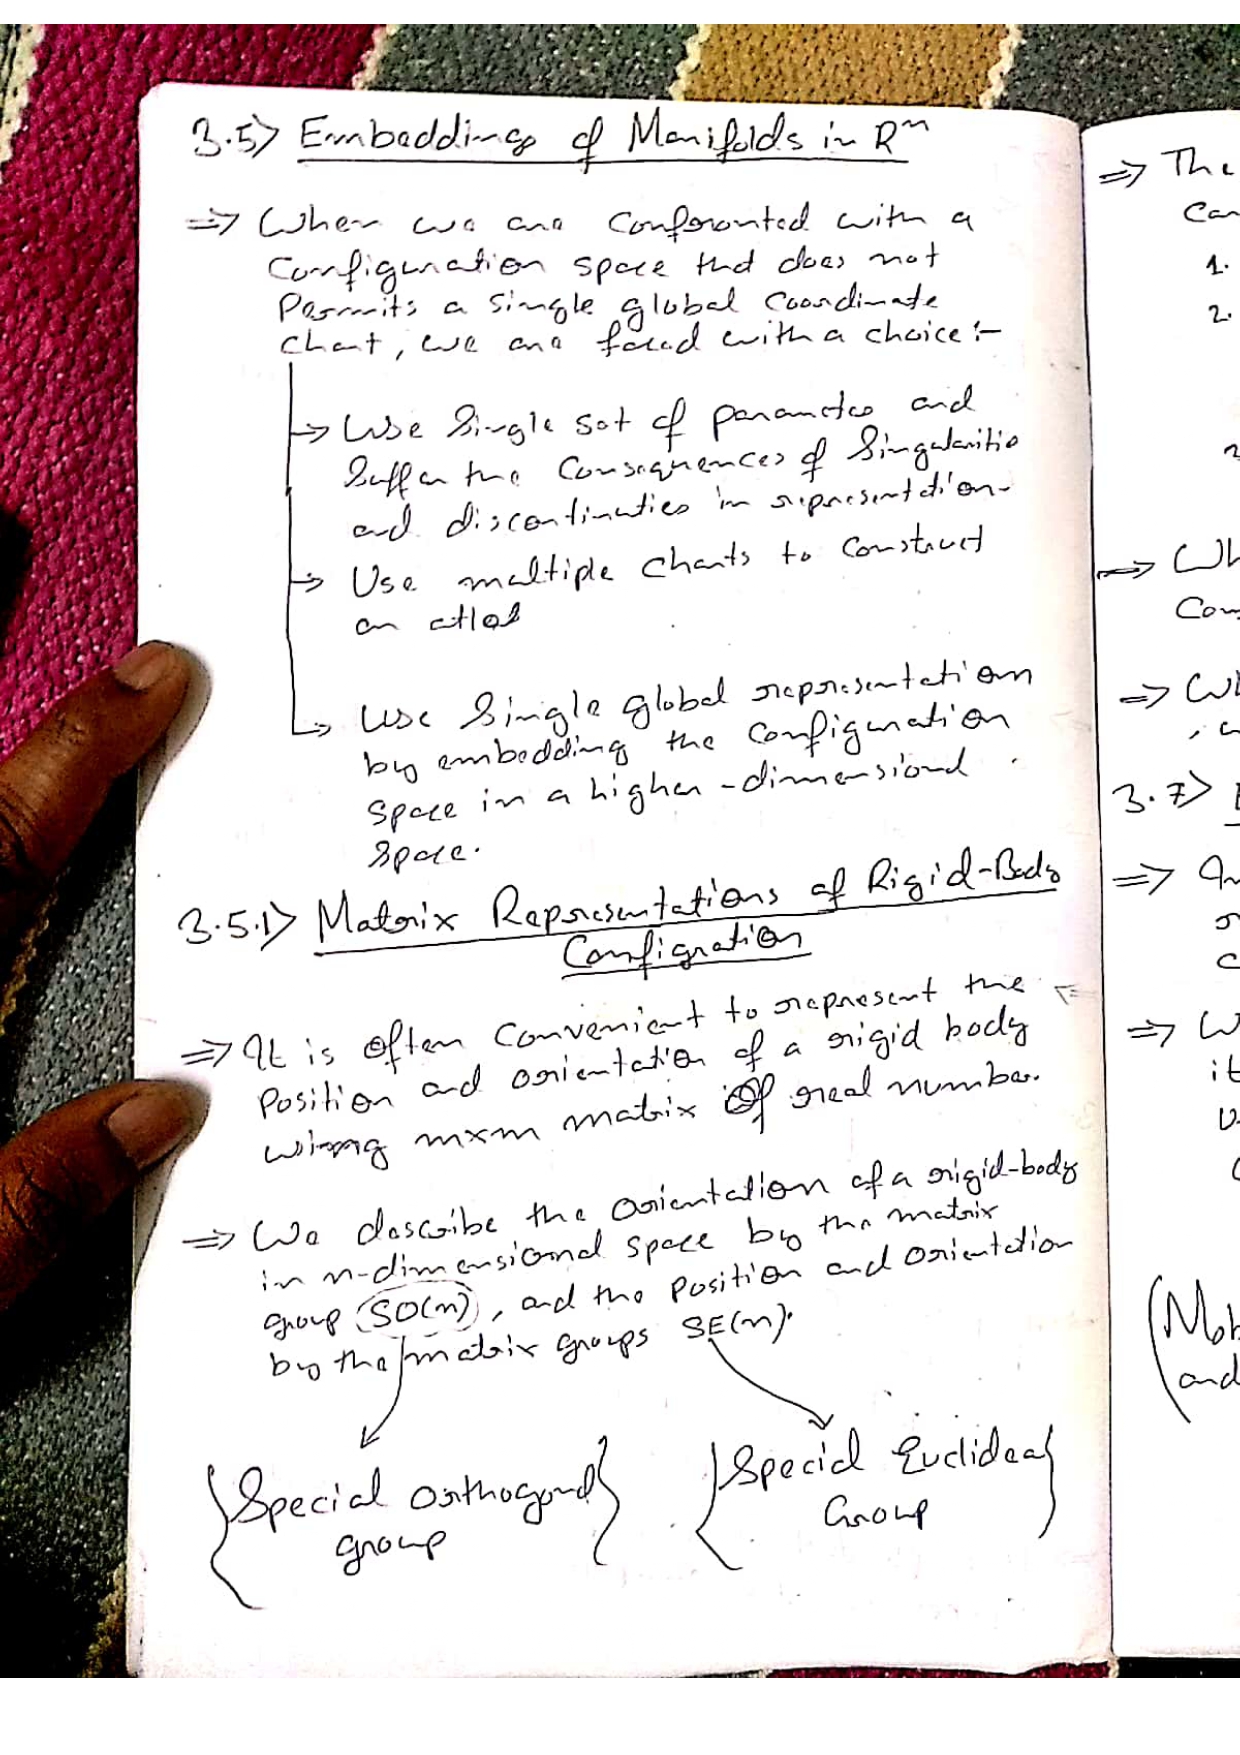 3.5> Embeddings of Manifolds in Rⁿ
=> When we are confronted with a
configuration space that does not
permits a single global coordinate
chart, we are faced with a choice :-
-> Use Single set of parameters and
Suffer the consequences of Singularities
and discontinuties in representation.
-> Use multiple charts to construct
an atlas
-> Use Single global representation
by embedding the configuration
space in a higher-dimensional
space.
3.5.1> Matrix Representations of Rigid-Body
Configration
=> It is often convenient to represent the
position and orientation of a rigid body
using mxm matrix of real number.
=> We describe the orientation of a rigid-body
in n-dimensional space by the matrix
group SO(n), and the position and orientation
by the matrix groups SE(n).
{Special Orthogonal
group}
{Special Euclidean
Group}
=> The
Can
1.
2.
=> Wh
Con
=> Wh
3.7>
=> In
=> W
it
(Mob
and